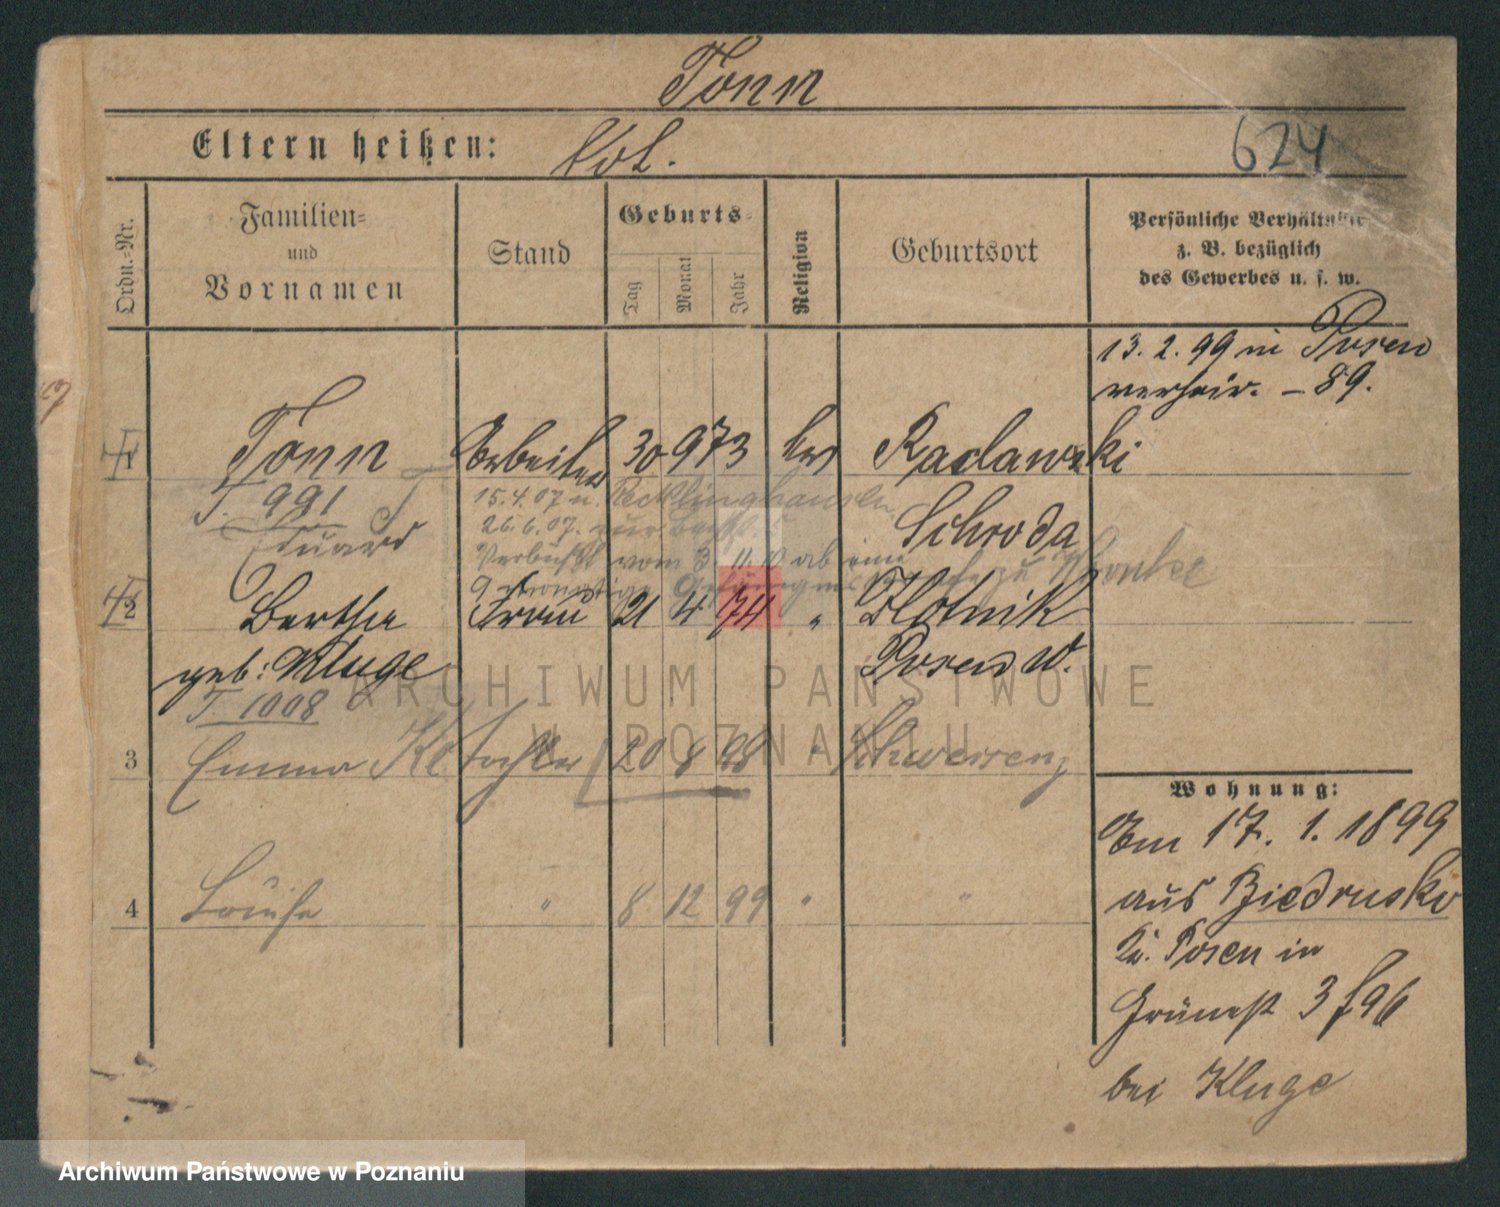 Tonn
Eltern heißen:
624
Ordn.-Nr.
Familien-
und
Vornamen
Stand
Geburts-
Tag
Monat
Jahr
Religion
Geburtsort
Persönliche Verhältnisse
z. B. bezüglich
des Gewerbes u. s. w.
13. 2. 99 in Posen
verheir. – 89.
1 Tonn Arbeiter 30 9 73 Raclawki
T. 991 15.4.07 n. Recklinghausen
Eduard 26.6.07. zur Schroda
Verbüßt vom 3. 11. 10 ab eine
9 monatige Gefängnis zu Wronke
2 Bertha Frau 21 4 74 " Zlotnik
geb: Kluge Posen W.
T. 1008
3 Emma Kl. Tochter 20 8 98 " Schwersenz
4 Louise " 8 12 99 " "
Wohnung:
Am 17. 1. 1899
aus Biedrusko
Kr. Posen in
Grünest 3 f 96
bei Kluge
ARCHIWUM PAŃSTWOWE
W POZNANIU
Archiwum Państwowe w Poznaniu